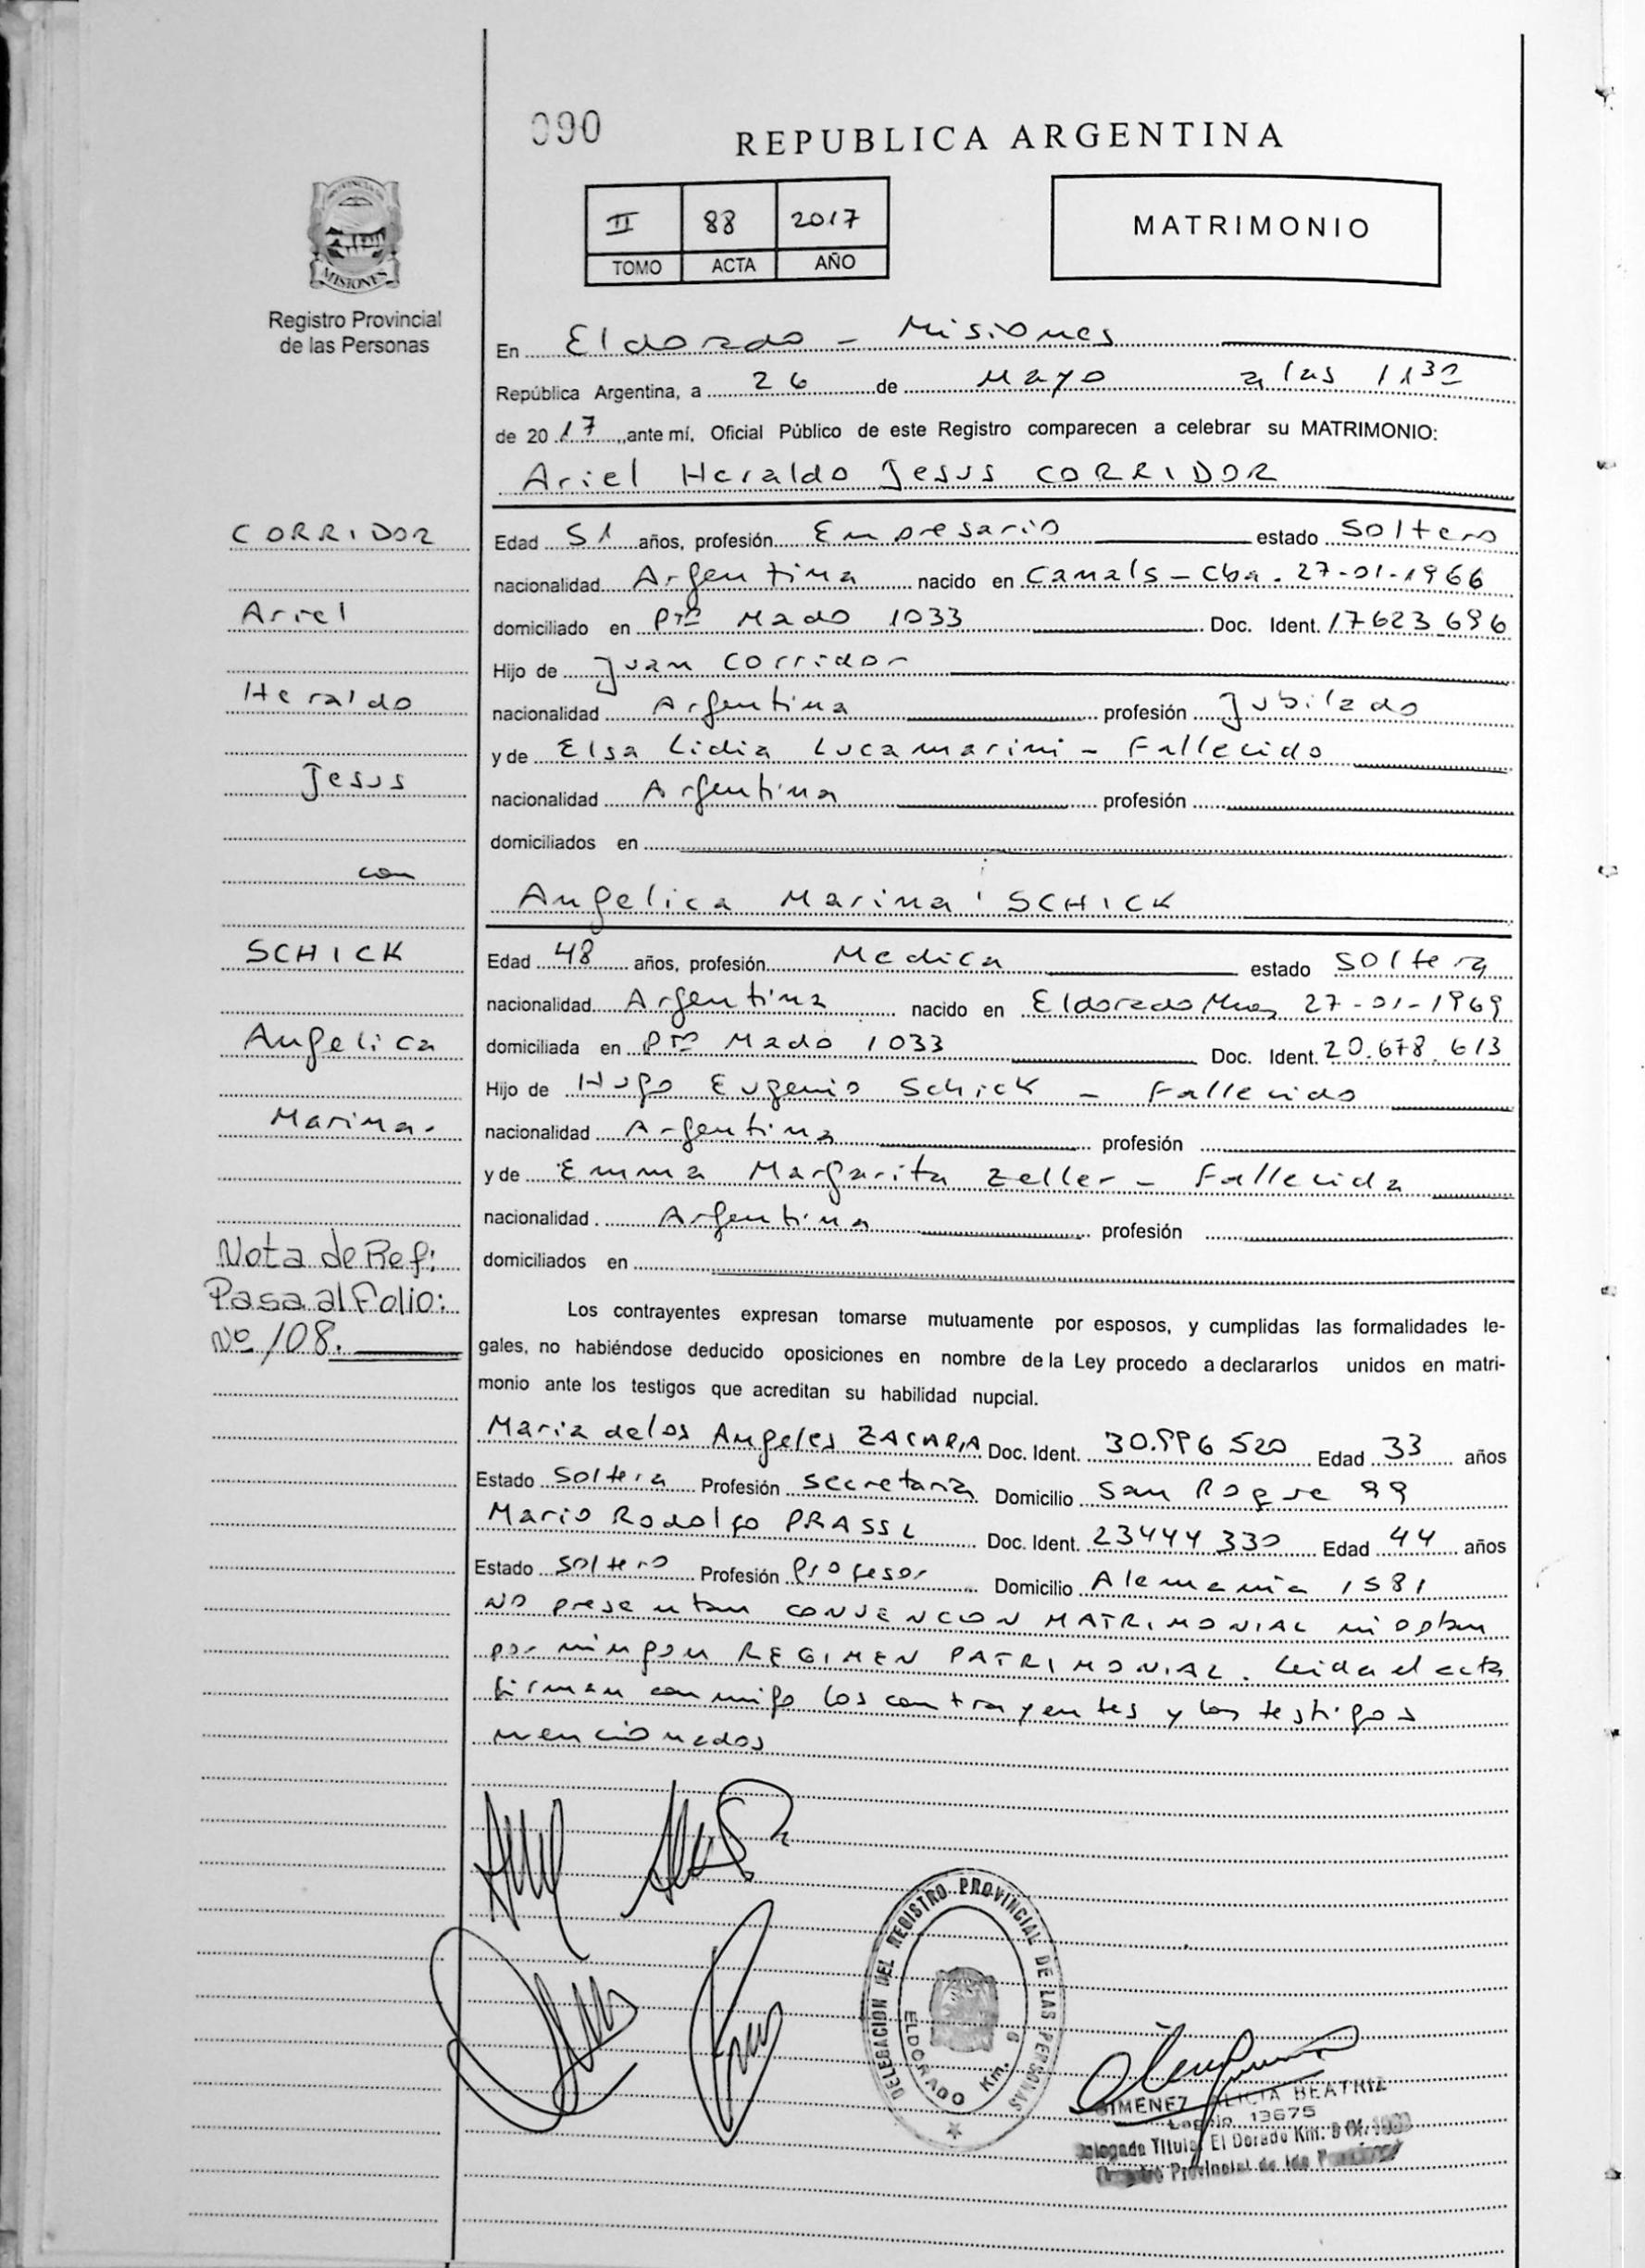 090
REPUBLICA ARGENTINA
II 88 2017
TOMO ACTA AÑO
MATRIMONIO
PROVINCIA DE
MISIONES
Registro Provincial
de las Personas
En Eldorado - Misiones
República Argentina, a 26 de Mayo a las 11 30
de 2017, ante mí, Oficial Público de este Registro comparecen a celebrar su MATRIMONIO:
Ariel Heraldo Jesus CORRIDOR
CORRIDOR
Ariel
Heraldo
Jesus
con
SCHICK
Angelica
Marina.
Nota de Ref:
Pasa al Folio:
Nº 108.
Edad 51 años, profesión Empresario estado Soltero
nacionalidad Argentina nacido en Canals - Cba. 27-01-1966
domiciliado en Pto Mado 1033 Doc. Ident. 17623696
Hijo de Juan Corridor
nacionalidad Argentina profesión Jubilado
y de Elsa Lidia Lucamarini - Fallecido
nacionalidad Argentina profesión
domiciliados en
Angelica Marina SCHICK
Edad 48 años, profesión Medica estado Soltera
nacionalidad Argentina nacido en Eldorado Mnes 27-01-1969
domiciliada en Pto Mado 1033 Doc. Ident. 20.678.613
Hijo de Hugo Eugenio Schick - Fallecido
nacionalidad Argentina profesión
y de Emma Margarita Zeller - Fallecida
nacionalidad Argentina profesión
domiciliados en
Los contrayentes expresan tomarse mutuamente por esposos, y cumplidas las formalidades le-
gales, no habiéndose deducido oposiciones en nombre de la Ley procedo a declararlos unidos en matri-
monio ante los testigos que acreditan su habilidad nupcial.
Maria de los Angeles ZACARIA Doc. Ident. 30.996 520 Edad 33 años
Estado Soltera Profesión Secretaria Domicilio San Roque 99
Mario Rodolfo PRASSL Doc. Ident. 23444 330 Edad 44 años
Estado Soltero Profesión Profesor Domicilio Alemania 1581
No presentan CONVENCION MATRIMONIAL ni optan
por ningun REGIMEN PATRIMONIAL. Leida el acta
firman conmigo los contrayentes y los testigos
mencionados
DELEGACION DEL REGISTRO PROVINCIAL DE LAS PERSONAS
ELDORADO Km.
GIMENEZ ALICIA BEATRIZ
Legajo 13675
Delegada Titular El Dorado Km.
Registro Provincial de las Personas